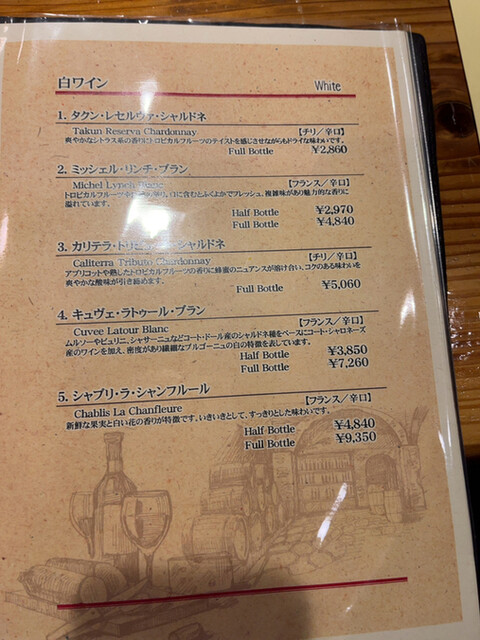 白ワイン White
1. タクン・レセルヴァ・シャルドネ
Takun Reserva Chardonnay 【チリ/辛口】
爽やかなシトラス系の香りにトロピカルフルーツのテイストを感じさせながらもドライな味わいです。
Full Bottle ¥2,860
2. ミッシェル・リンチ・ブラン
Michel Lynch 【フランス/辛口】
トロピカルフルーツ 口に含むとふくよかでフレッシュ、複雑味があり魅力的な香りに
溢れています。
Half Bottle ¥2,970
Full Bottle ¥4,840
3. カリテラ・トリ シャルドネ
Caliterra Tributo Chardonnay 【チリ/辛口】
アプリコットや熟したトロピカルフルーツの香りに蜂蜜のニュアンスが溶け合い、コクのある味わいを
爽やかな酸味が引き締めます。
Full Bottle ¥5,060
4. キュヴェ・ラトゥール・ブラン
Cuvee Latour Blanc 【フランス/辛口】
ムルソーやピュリニ、シャサーニュなどコート・ドール産のシャルドネ種をベースにコート・シャロネーズ
産のワインを加え、密度があり繊細なブルゴーニュの白の特徴を表しています。
Half Bottle ¥3,850
Full Bottle ¥7,260
5. シャブリ・ラ・シャンフルール
Chablis La Chanfleure 【フランス/辛口】
新鮮な果実と白い花の香りが特徴です。いきいきとして、すっきりとした味わいです。
Half Bottle ¥4,840
Full Bottle ¥9,350